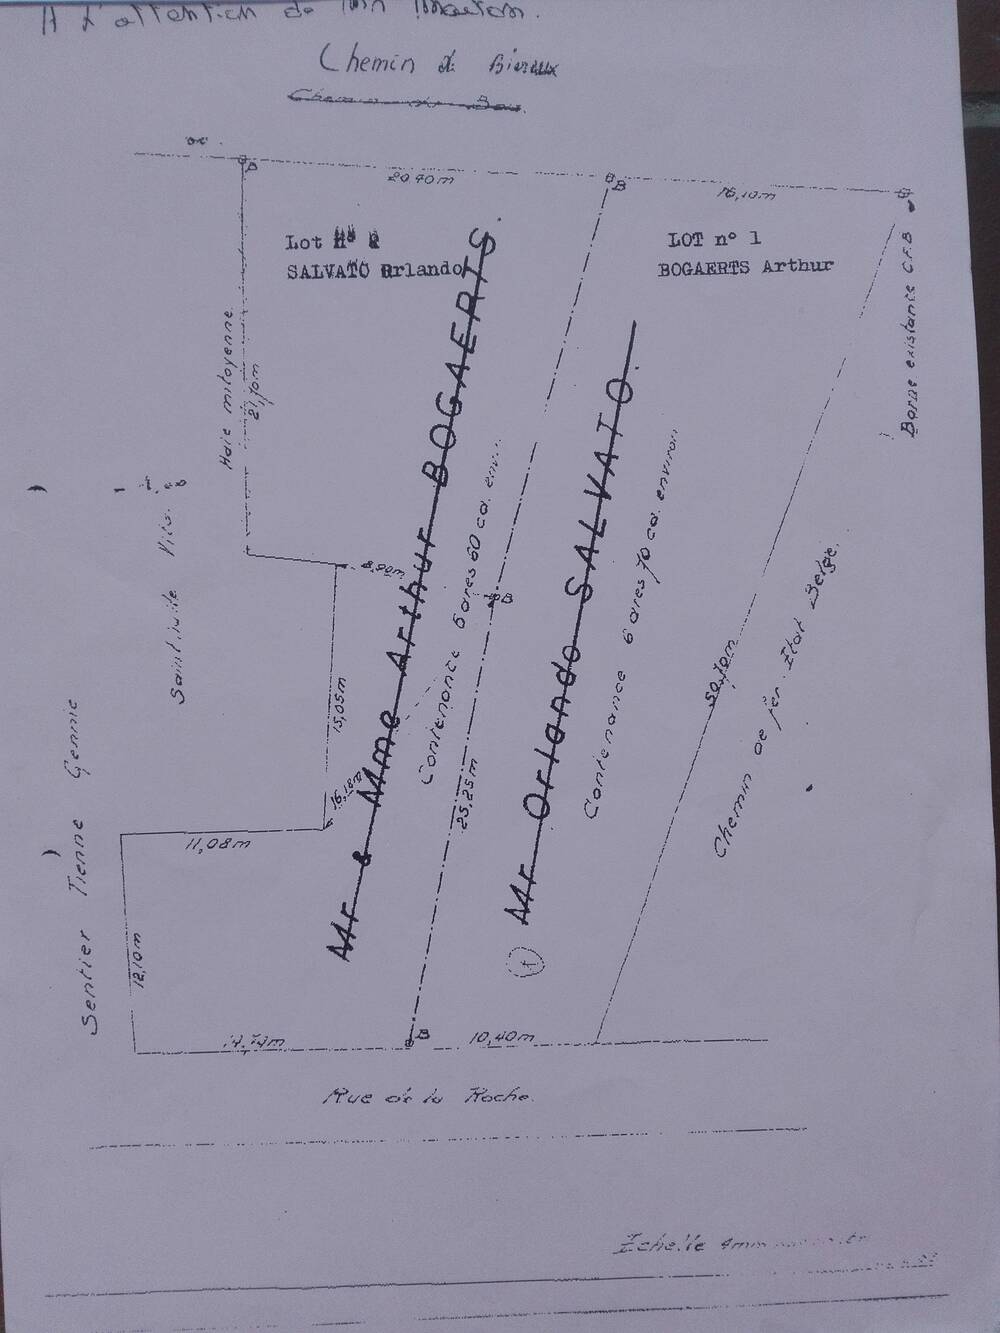 A L'attention de
Chemin de
Chemin du Bois.
B
20,40m
B
16,10m
Lot n° 2
SALVATO Orlando
LOT n° 1
BOGAERTS Arthur
Borne existante C.F.B
Haie mitoyenne
21,70m
Mr & Mme Arthur BOGAERTS.
Contenance 6 ares 60 ca. env...
Mr Orlando SALVATO.
Contenance 6 ares 70 ca. environ
8,90m
B
15,05m
16,18m
25,25m
50,70m
Chemin de fer. Etat Belge.
Sentier Tienne Gennie
11,08m
12,10m
14,74m
B
10,40m
Rue de la Roche.
Echelle 4mm